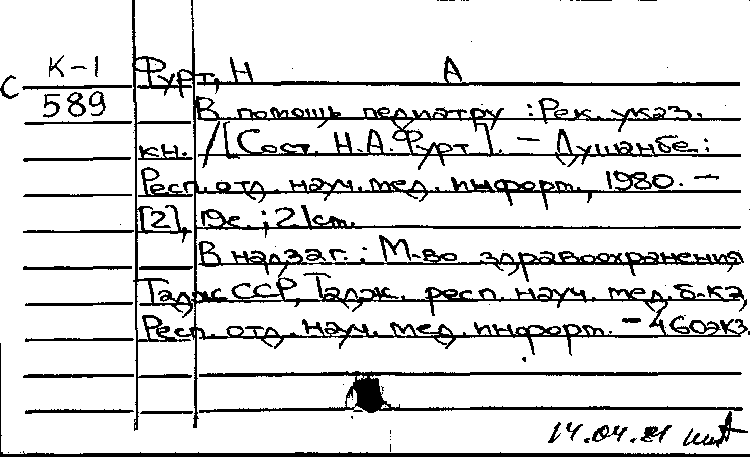 К-1 Фурт, Н А
С 589
В помощь педиатру : Рек. указ.
кн. / [Сост. Н.А. Фурт]. — Душанбе :
Респ. отд. науч. мед. информ., 1980. —
[2], 19с. ; 21см.
В надзаг. : М-во здравоохранения
ТаджССР, Тадж. респ. науч. мед. б-ка,
Респ. отд. науч. мед. информ. — 460экз.
14.04.81